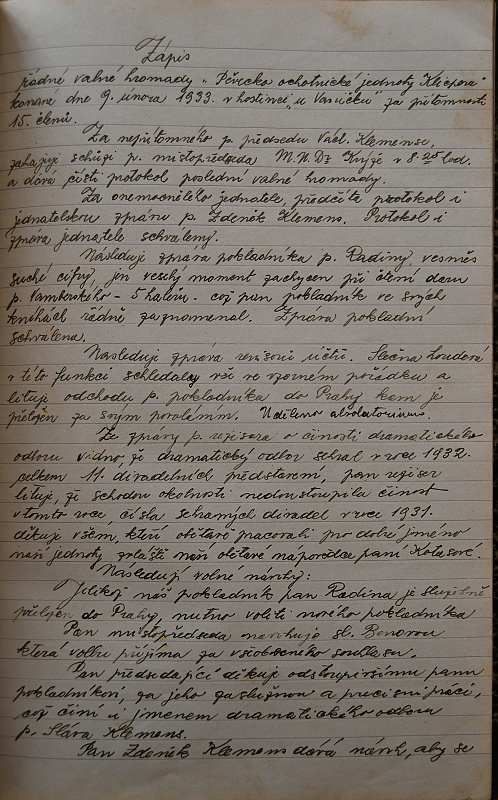 Zápis
řádné valné hromady "Pěvecko ochotnické jednoty Klicpera"
konané dne 9. února 1933. v hostinci "u Vaňučků" za přítomnosti
15. členů.
Za nepřítomného p. předsedu Václ. Klemense,
zahajuje schůzi p. místopředseda M.U.Dr Krýže v 8.25 hod.
a dává čísti protokol poslední valné hromady.
Za onemocnělého jednatele, předčítá protokol i
jednatelskou zprávu p. Zdeněk Klemens. Protokol i
zpráva jednatele schváleny.
Následuje zpráva pokladníka p. Radiny vesměs
suché cifry, jen veselý moment zachycen při čtení daru
p. Vamberského - 5 haléřů. což pan pokladník ve svých
knihách řádně zaznamenal. Zpráva pokladní
schválena.
Následuje zpráva revisorů účtů. Slečna Loudová
v této funkci schledala vše ve vzorném pořádku a
lituje odchodu p. pokladníka do Prahy kam je
přeložen za svým povoláním. Uděleno absolutorium.
Ze zprávy p. režisera o činosti dramatického
odboru vidno, že dramatický odbor sehrál v roce 1932.
celkem 11. divadelních představení, pan režiser
lituje, že schodou okolností nedoustoupila činost
v tomto roce, čísla sehraných divadel v roce 1931.
děkuje všem, kteří obětavě pracovali pro dobré jméno
naší jednoty zvláště naší obětavé nápovědce paní Kolasové.
Následují volné návrhy:
Jelikož náš pokladník pan Radina je služebně
přeložen do Prahy, nutno voliti nového pokladníka
Pan místopředseda navrhuje sl. Benovou
která volbu přijímá za všeobecného souhlasu.
Pan předsedající děkuje odstoupivšímu panu
pokladníkovi, za jeho záslužnou a precisní práci,
což činí i jmenem dramatického odboru
p. Sláva Klemens.
Pan Zdeněk Klemens dává návrh, aby se